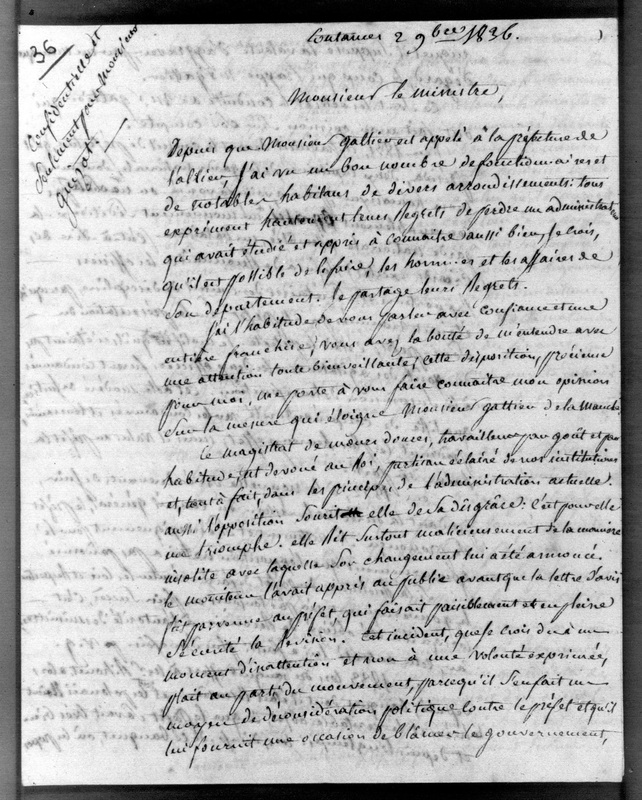 36
Confidentielle et
Seulement pour Monsieur
guizot.
Coutances 2 9bre 1836.
Monsieur le ministre,
Depuis que Monsieur gattier est appelé à la préfecture de
l'allier j'ai vu un bon nombre de fonctionnaires et
de notables habitans de divers arrondissements: tous
expriment hautement leurs regrets de perdre un administrateur
qui avait étudié et appris à connaître aussi bien, je crois,
qu'il est possible de le faire, les hommes et les affaires de
son département. je partage leurs regrets.
J'ai l'habitude de vous parler avec confiance et une
entière franchise; vous avez la bonté de m'entendre avec
une attention toute bienveillante; cette disposition, précieuse
pour moi, me porte à vous faire connaître mon opinion
sur la mesure qui éloigne Monsieur gattier de la Manche.
Ce magistrat de mœurs douces, travailleur par goût et par
habitude, est dévoué au Roi, partisan éclairé de nos institutions
et, tout à fait, dans les principes de l'administration actuelle.
aussi l'opposition sourit elle de sa disgrâce: c'est pour elle
un triomphe. elle rit surtout malicieusement de la manière
insolite avec laquelle son changement lui a été annoncé.
le moniteur l'avait appris au public avant que la lettre d'avis
fût parvenue au préfet, qui faisait paisiblement et en pleine
sécurité la révision. Cet incident, que je crois dû à un
moment d'inattention et non à une volonté exprimée,
plait au parti du mouvement, parcequ'il s'en fait un
moyen de déconsidération politique contre le préfet et qu'il
lui fournit une occasion de blâmer le gouvernement,